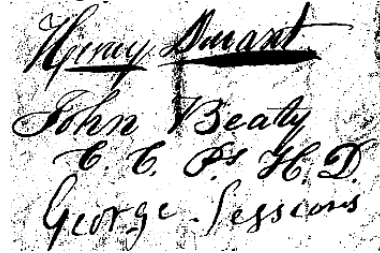 Henry Durant
John Beaty
C. C. Ps H. D.
George Sessions